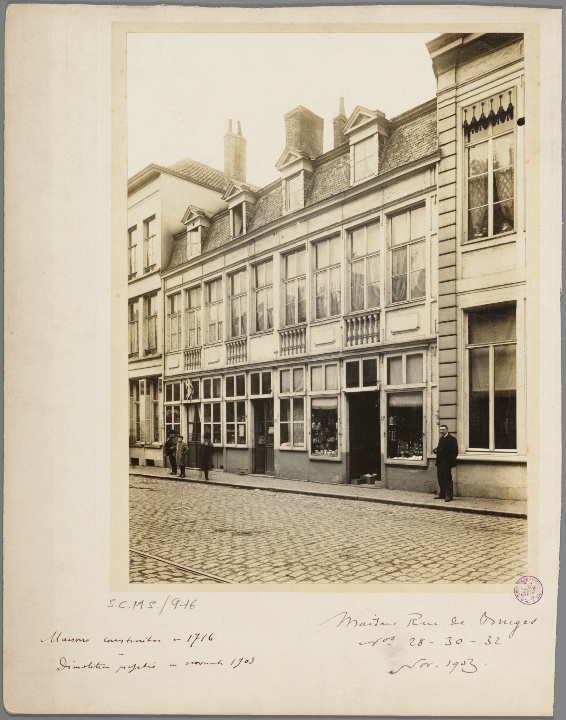 S.C.M.S/9-16
Maisons construites en 1716
Démolition projetée en 1903
Rue de Bruges
Nos 28 - 30 - 32
Nov. 1903.